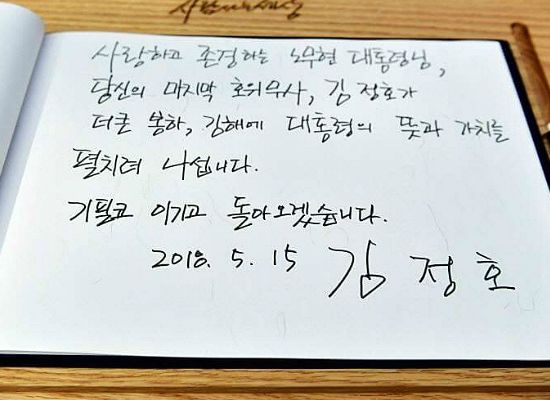 사람사는세상
사랑하고 존경하는 노무현 대통령님,
당신의 마지막 호위무사, 김정호가
더큰 봉하, 김해에 대통령의 뜻과 가치를
펼치려 나섭니다.
기필코 이기고 돌아오겠습니다.
2018. 5. 15 김정호